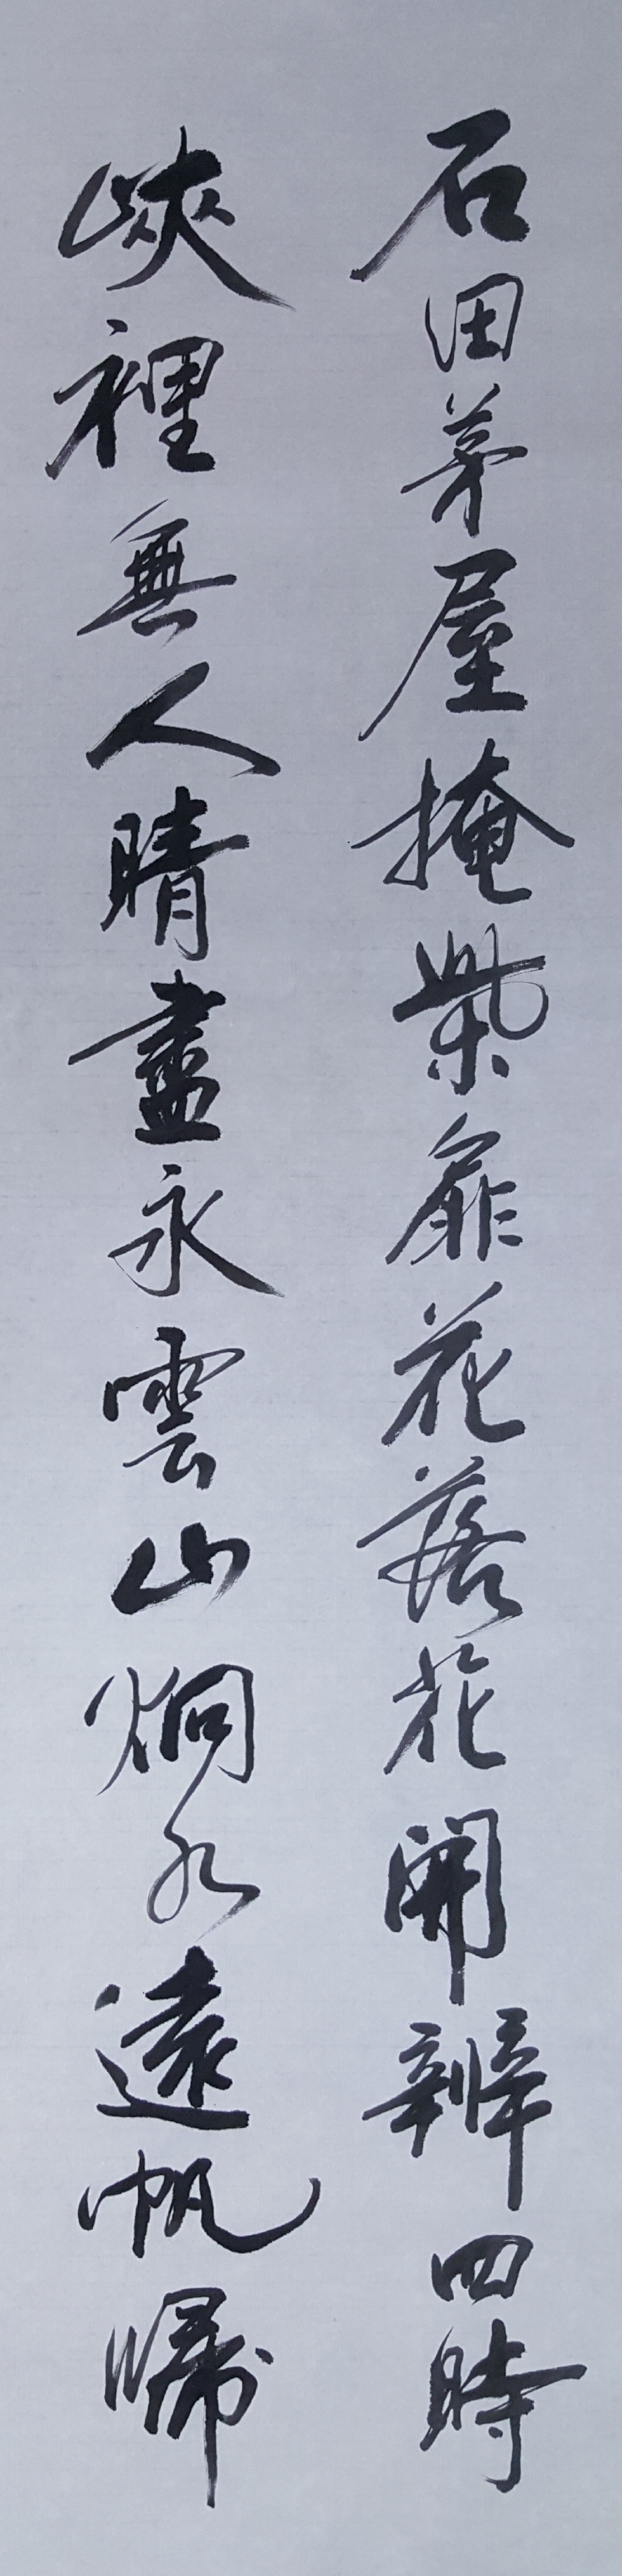 石田茅屋掩柴扉花落花開辨四時
峽裡無人晴盡永雲山炯水遠帆歸